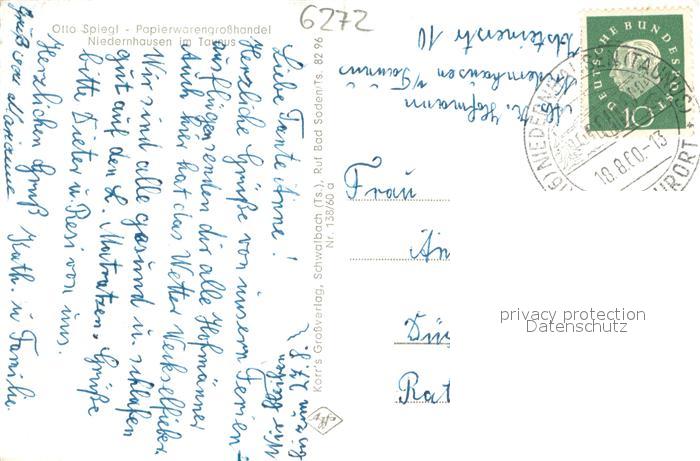 Otto Spiegl - Papierwarengroßhandel
Niedernhausen im Taunus
6272
Liebe Tante Anne!
Herzliche Grüße von unsern Ferien-
ausflügen senden dir alle Hofmänner
Auch hier hat das Wetter Wechselfieber.
Wir sind alle gesund u. schlafen
gut auf den L. Matratzen. Grüße
bitte Dieter u. Resi von uns.
Herzlichen Gruß Kath. u Familie
Gruß von Marianne
Wir bleiben
bis zum 27.8.
Korr's Großverlag, Schwalbach (Ts.), Ruf Bad Soden/Ts. 82 96
Nr. 138/60 a
Hofmann
Niedernhausen /Taunus
Idsteinerstr 10
DEUTSCHE BUNDESPOST
10
(16) NIEDERNHAUSEN (TAUNUS)
18.8.60-13
KURORT
Frau
An
Dü
Rat
privacy protection
Datenschutz